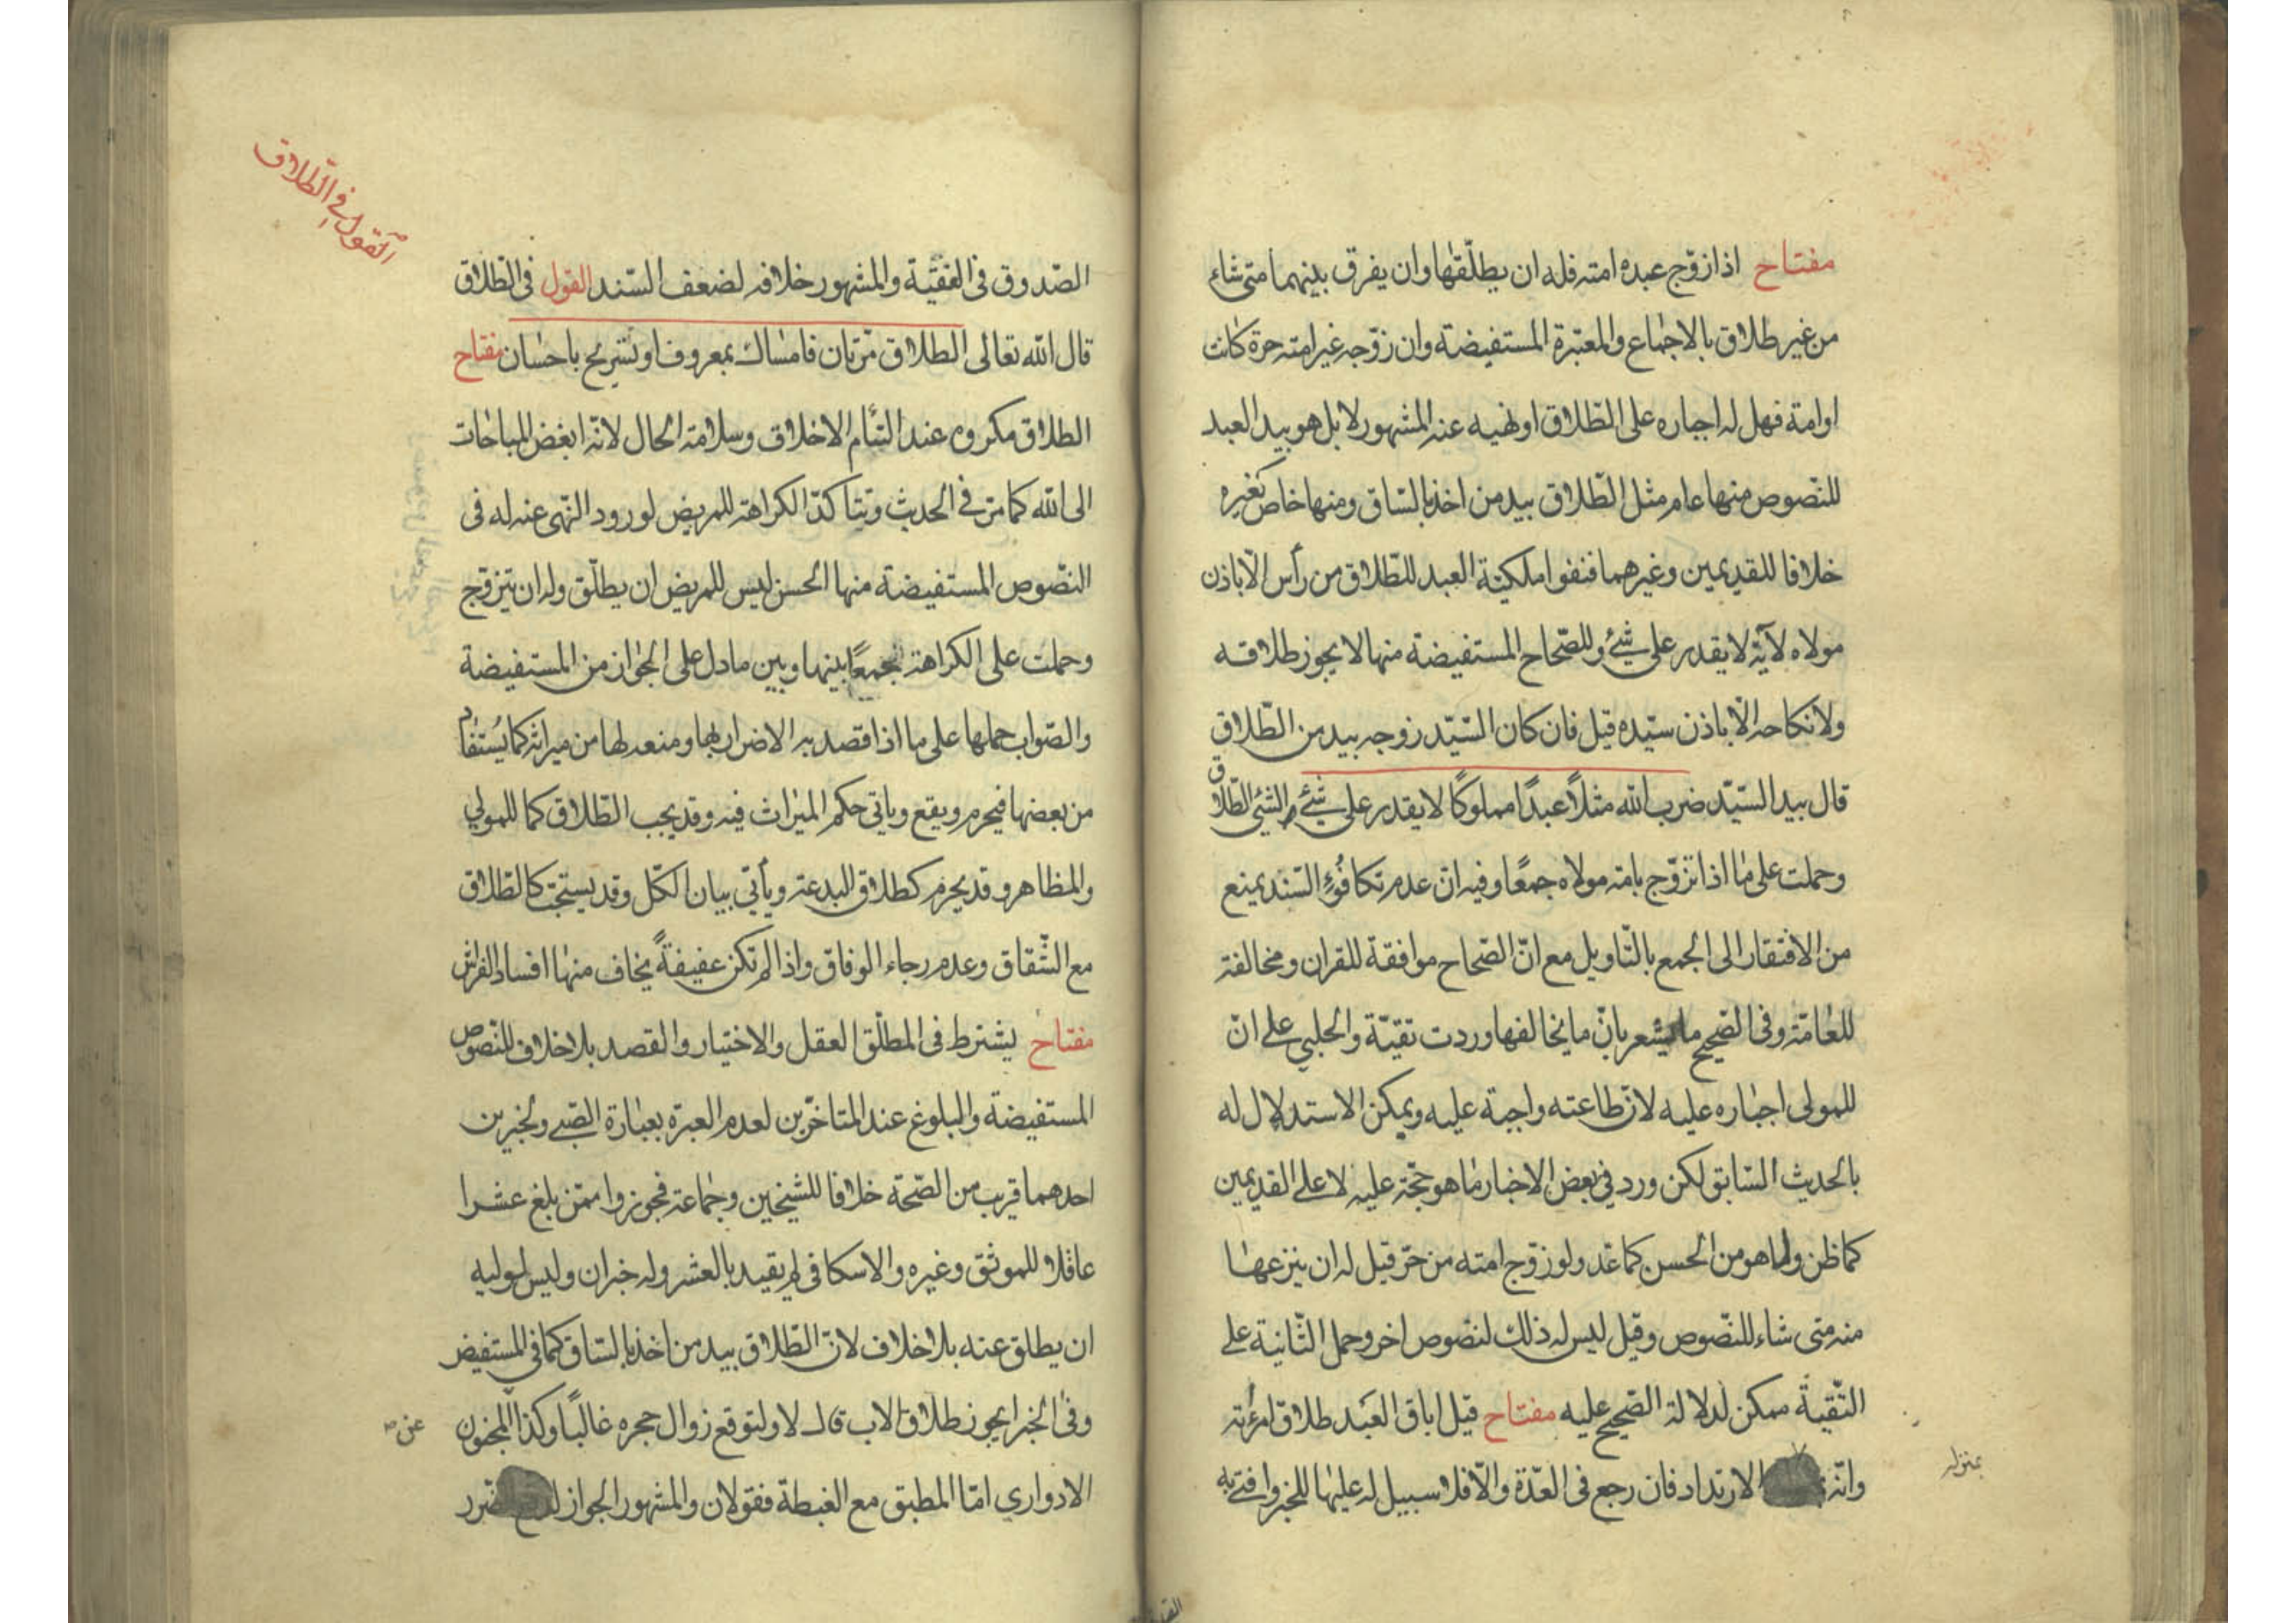 مفتاح اذا زوّج عبده امته فله ان يطلّقها وان يفرق بينهما متى شاء
من غير طلاق بالاجماع والمعتبرة المستفيضة وان زوّجه غير امته حرة كانت
او امة فهل له اجباره على الطّلاق او نهيه عنه المشهور لا بل هو بيد العبد
للنّصوص منها عام مثل الطّلاق بيد من اخذ بالسّاق ومنها خاص كغيره
خلافا للقديمين وغيرهما فنفوا ملكيّة العبد للطّلاق من رأس الّا باذن
مولاه لآية لا يقدر على شئ وللصّحاح المستفيضة منها لا يجوز طلاقه
ولا نكاحه الّا باذن سيّده قيل فان كان السّيّد زوجه بيد من الطّلاق
قال بيد السّيّد ضرب الله مثلاً عبدًا مملوكًا لا يقدر على شئ والشئ الطّلاق
وحملت على ما اذا تزوّج بامة مولاه جمعًا وفيه انّ عدم تكافؤ السّند يمنع
من الافتقار الى الجمع بالتّاويل مع انّ الصّحاح موافقة للقران ومخالفة
للعامّة وفى الصّحيح ما يشعر بانّ ما يخالفها وردت تقيّة والحلبي على انّ
للمولى اجباره عليه لانّ طاعته واجبة عليه ويمكن الاستدلال له
بالحديث السّابق لكن ورد في بعض الاخبار ما هو حجّة عليه لا على القديمين
كما ظن ولما هو من الحسن كما عدّ ولو زوّج امته من حرّ قيل له ان ينزعها
منه متى شاء للنّصوص وقيل ليس له ذلك لنصوص اخر وحمل الثّانية على
التّقيّة ممكن لدلالة الصّحيح عليه مفتاح قيل اباق العبد طلاق امرأته
وانّه الارتداد فان رجع فى العدّة والّا فلا سبيل له عليها للخبر وافتى به
بمنزلة
القول في الطّلاق
الصّدوق فى الفقيه والمشهور خلافه لضعف السّند القول فى الطّلاق
قال الله تعالى الطلاق مرّتان فامساك بمعروف او تسريح باحسان مفتاح
الطلاق مكروه عند التئام الاخلاق وسلامة الحال لانّه ابغض المباحات
الى الله كما مرّ في الحديث ويتاكدّ الكراهة للمريض لورود النّهى عنه له فى
النّصوص المستفيضة منها الحسن ليس للمريض ان يطلّق وله ان يتزوّج
وحملت على الكراهة جمعًا بينها وبين ما دل على الجواز من المستفيضة
والصّواب حملها على ما اذا قصد به الاضرار بها ومنعه لها من ميراثه كما يُستفاد
من بعضها فيحرم ويقع وياتي حكم الميراث فيه وقد يجب الطّلاق كما للمولي
والمظاهر وقد يحرم كطلاق البدعة ويأتي بيان الكّل وقد يستحبّ كالطّلاق
مع الشّقاق وعدم رجاء الوفاق واذا لم تكن عفيفةً يخاف منها افساد الفراش
مفتاح يشترط فى المطلّق العقل والاختيار والقصد بلا خلاف للنّصوص
المستفيضة والبلوغ عند المتاخّرين لعدم العبرة بعبارة الصّبي ولخبرين
احدهما قريب من الصّحة خلافا للشيخين وجماعة فجوزوا ممّن بلغ عشرا
عاقلا للموثق وغيره والاسكافى لم يقيد بالعشر وله خبران وليس لوليه
ان يطلق عنه بلا خلاف لانّ الطّلاق بيد من اخذ بالسّاق كما في المستفيض
وفى الخبر ايجوز طلاق الاب قال لا ولتوقع زوال حجره غالبًا وكذا المجنون
عن
الادواري امّا المطبق مع الغبطة فقولان والمشهور الجواز